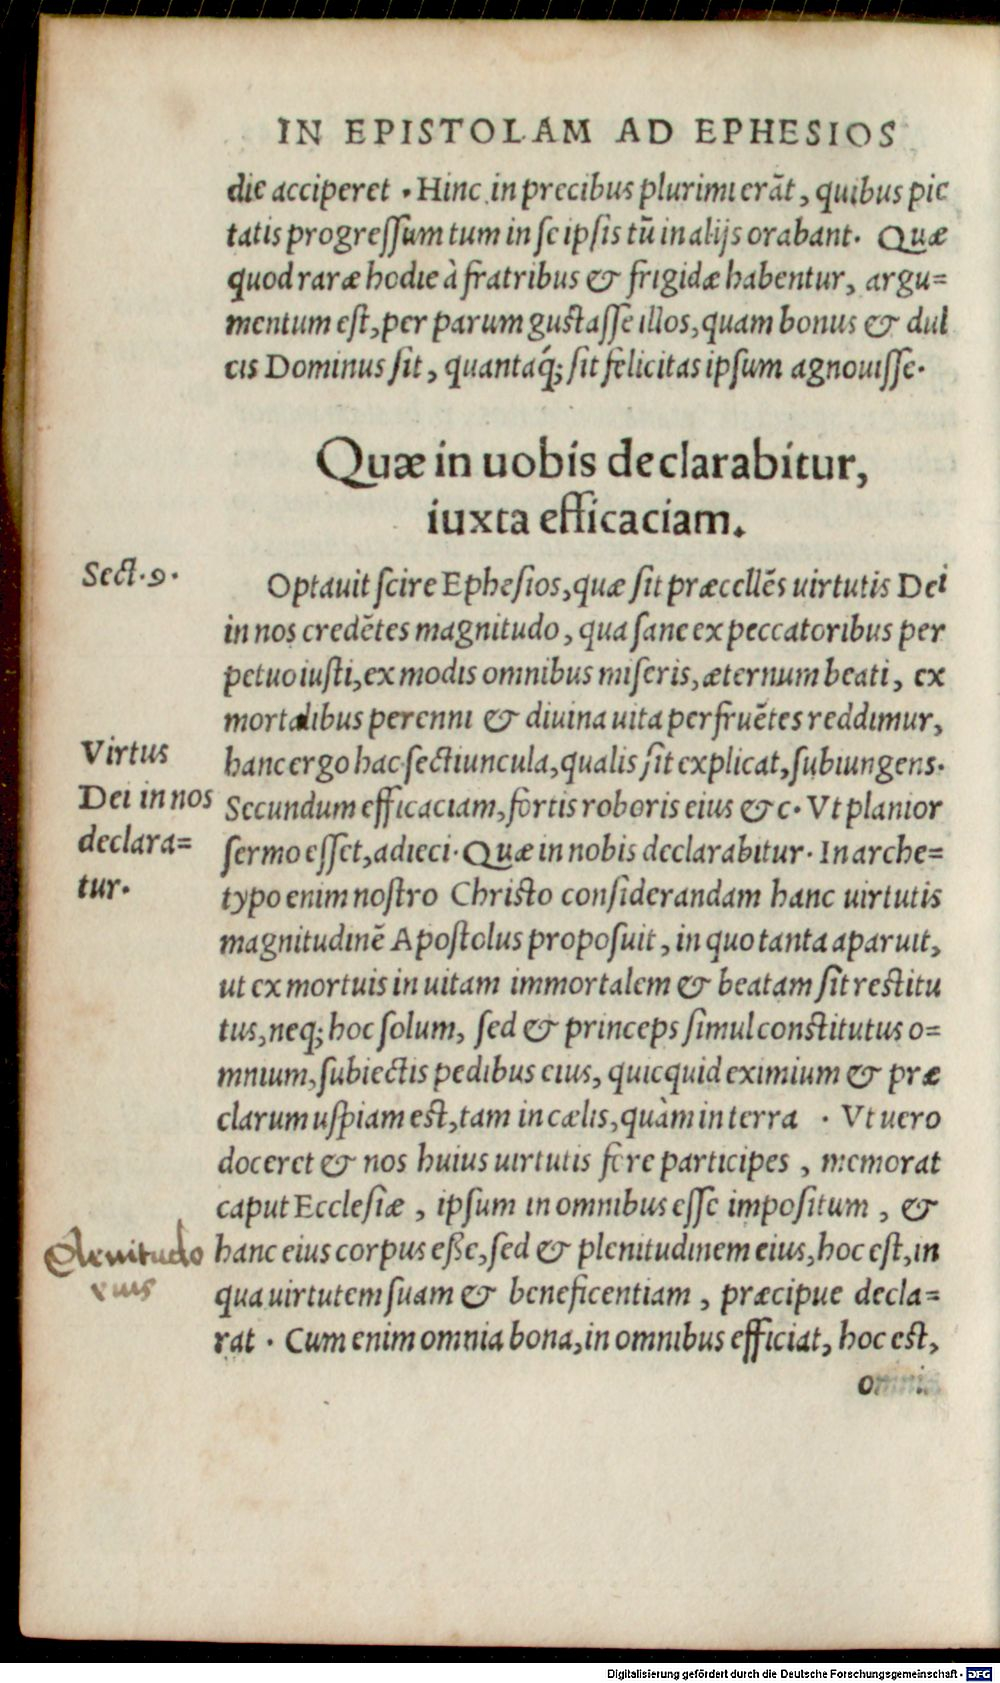 IN EPISTOLAM AD EPHESIOS
die acciperet . Hinc in precibus plurimi erāt, quibus pie
tatis progreſſum tum in ſe ipſis tū in alijs orabant. Quæ
quod raræ hodie à fratribus & frigidæ habentur, argu=
mentum eſt, per parum guſtaſſe illos, quam bonus & dul
cis Dominus ſit, quantaq́; ſit felicitas ipſum agnouiſſe.
Quæ in uobis declarabitur,
iuxta efficaciam.
Sect. 9.
Optauit ſcire Epheſios, quæ ſit præcellēs uirtutis Dei
in nos credētes magnitudo, qua ſane ex peccatoribus per
petuo iuſti, ex modis omnibus miſeris, æternum beati, ex
mortalibus perenni & diuina uita perfruētes reddimur,
hanc ergo hac ſectiuncula, qualis ſit explicat, ſubiungens.
Virtus
Dei in nos
declara=
tur.
Secundum efficaciam, fortis roboris eius & c. Vt planior
ſermo eſſet, adieci. Quæ in nobis declarabitur. In arche=
typo enim noſtro Chriſto conſiderandam hanc uirtutis
magnitudinē Apoſtolus propoſuit, in quo tanta aparuit,
ut ex mortuis in uitam immortalem & beatam ſit reſtitu
tus, neq; hoc ſolum, ſed & princeps ſimul conſtitutus o=
mnium, ſubiectis pedibus eius, quicquid eximium & præ
clarum uſpiam eſt, tam in cælis, quàm in terra . Vt uero
doceret & nos huius uirtutis fore participes, memorat
caput Eccleſiæ, ipſum in omnibus eſſe impoſitum, &
Plenitudo
eius
hanc eius corpus eße, ſed & plenitudinem eius, hoc eſt, in
qua uirtutem ſuam & beneficentiam, præcipue decla=
rat . Cum enim omnia bona, in omnibus efficiat, hoc eſt,
omni
Digitalisierung gefördert durch die Deutsche Forschungsgemeinschaft - DFG